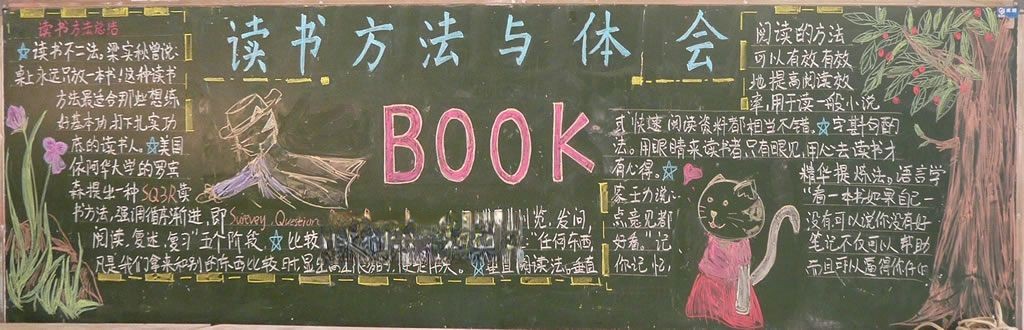 读书方法与体会
BOOK
读书方法总结
☆读书不二法,梁实秋曾说:
桌上永远只放一本书!这种读书
方法最适合那些想练
好基本功,打下扎实功
底的读书人。☆美国
依阿华大学的罗宾
森提出一种SQ3R读
书方法,强调循序渐进,即Survey Question
览,发问,
阅读,复述,复习"五个阶段。☆比较
"任何东西,
凡是我们拿来和别的东西比较时,显
☆垂直阅读法。垂直
阅读的方法
可以有效有效
地提高阅读效
率,用于读一般小说
式"快速阅读资料都相当不错。☆字斟句酌
法。用眼睛来读书者,只有眼见,用心去读书才
有心得。☆
精华提炼法。语言学
家王力说:
"看一本书如果自己一
点意见都
没有可以说你没有好
好看。"记
笔记不仅可以帮助
你记忆,
而且可以逼得你仔细